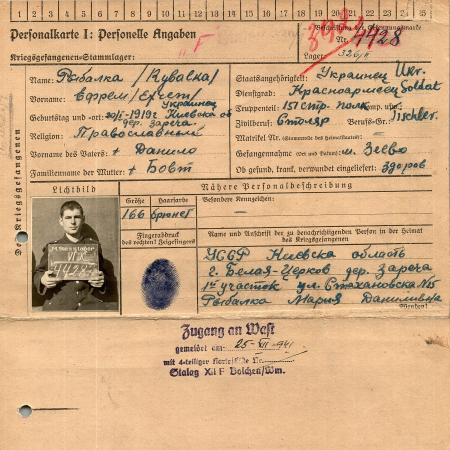 1 2 3 4 5 6 7 8 9 10 11 12 13 14 15 16 17 18 19 20 21 22 23 24 25
Personalkarte I: Personelle Angaben
Beschriftung der Erkennungsmarke
Kriegsgefangenen-Stammlager:
"F"
Nr. 4428
Lager: 326/II
Des Kriegsgefangenen
Name: Рыбалка /Rybalka/
Vorname: Ефрем/Efrem/
украинец
Geburtstag und -ort: 20/I-1919г Киевска об
дер. зареча
Religion: Православный
Vorname des Vaters: + Данило
Familienname der Mutter: + Бовт
Staatsangehörigkeit: Украинец Ukr.
Dienstgrad: Красноармеец Soldat
Truppenteil: 151 стр. полк
Zivilberuf: Столяр Berufs-Gr.: Tischler
Matrikel Nr. (Stammrolle des Heimatstaates):
Gefangennahme (Ort und Datum): м. Зеево
Ob gesund, krank, verwundet eingeliefert: здоров
Lichtbild
Nähere Personalbeschreibung
Größe
Haarfarbe
Besondere Kennzeichen:
166
брюнет
Fingerabdruck
des rechten! Zeigefingers
Name und Anschrift der zu benachrichtigenden Person in der Heimat
des Kriegsgefangenen
УССР Киевска область
г. Белая-Церков дер. Зареча
1й участок ул. Стахановска №15
Рыбалка Мария Даниливна
44281
Zugang an West
gemeldet am: 25-VII-1941
mit 4-teiliger Karteiliste Nr.
Stalag XII F Bolchen/Wm.